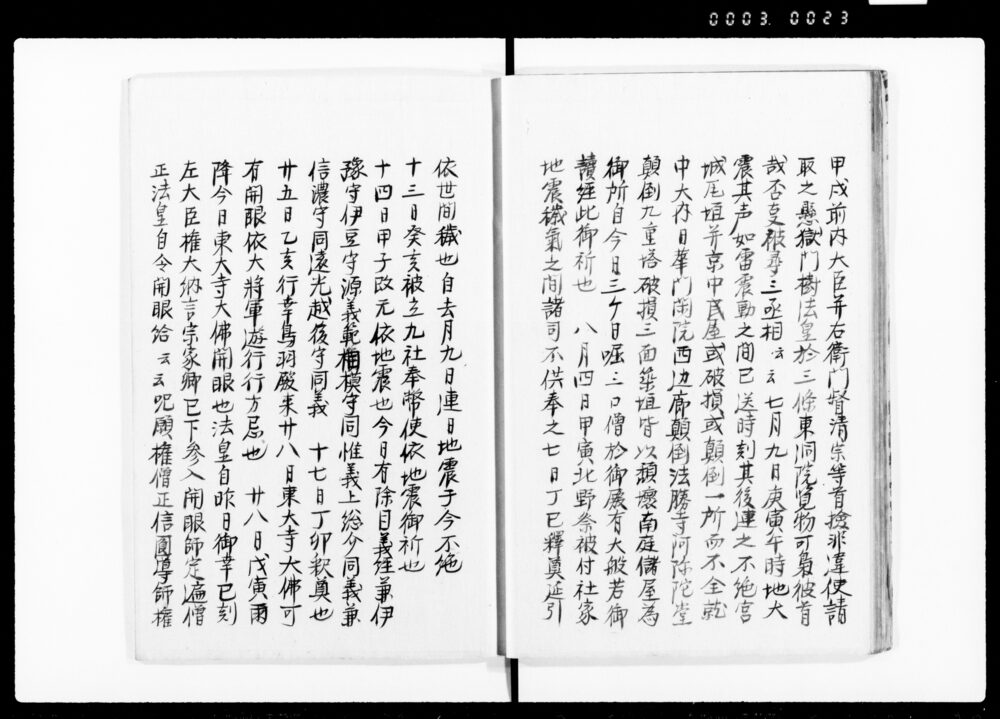 0003.0023
甲戌前内大臣并右衛門督清宗等首撿非違使請
取之懸獄門樹法皇於三條東洞院覧物可梟彼首
哉否支被尋三丞相云云七月九日庚寅午時地大
震其声如雷震動之間已送時刻其後連之不絶宮
城瓦垣并京中民屋或破損或顛倒一所而不全就
中大内日華門閑院西辺廊顛倒法勝寺阿弥陀堂
顛倒九重塔破損三面築垣皆以頽壊南庭儲屋為
御所自今日三ケ日啒三口僧於御殿有大般若御
讀経此御祈也 八月四日甲寅北野祭被付社家
地震穢氣之間諸司不供奉之七日丁巳釋奠延引
依世間穢也自去月九日連日地震于今不絶
十三日癸亥被立九社奉幣使依地震御祈也
十四日甲子改元依地震也今日有除目義経兼伊
豫守伊豆守源義範相模守同惟義上総介同義兼
信濃守同遠光越後守同義 十七日丁卯釈奠也
廿五日乙亥行幸鳥羽殿来廿八日東大寺大佛可
有開眼依大将軍遊行行方忌也 廿八日戊寅雨
降今日東大寺大佛開眼也法皇自昨日御幸巳刻
左大臣権大納言宗家卿已下参入開眼師定遍僧
正法皇自令開眼給云云呪願権僧正信圓導師権